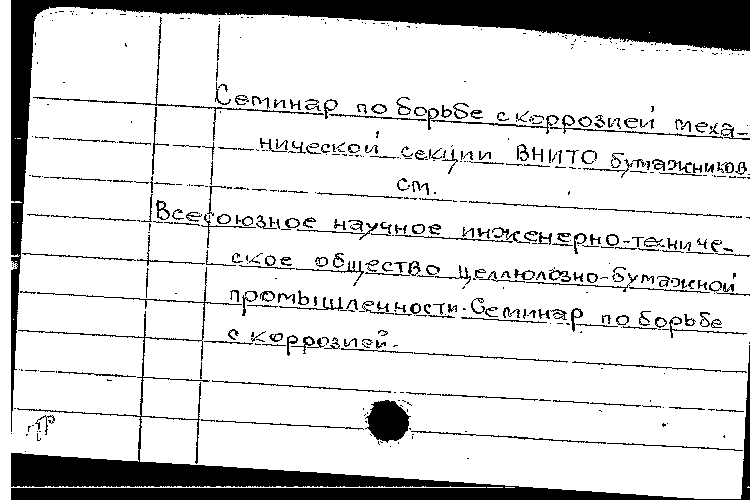 Семинар по борьбе с коррозией меха-
нической секции ВНИТО бумажников.
см.
Всесоюзное научное инженерно-техниче-
ское общество целлюлозно-бумажной
промышленности. Семинар по борьбе
с коррозией.